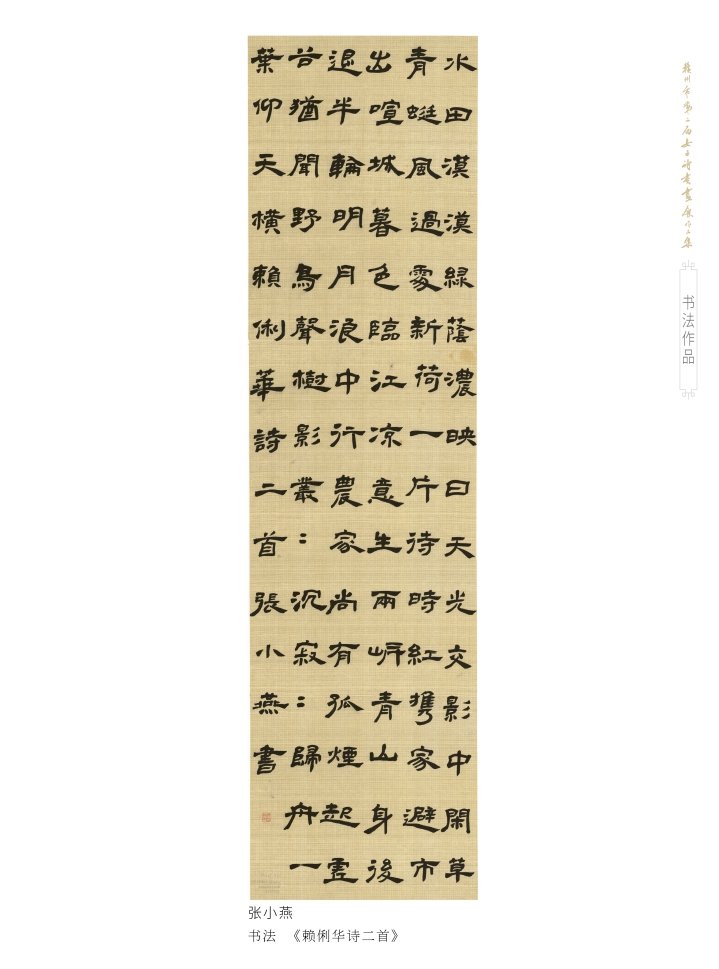 水田漠漠緑蔭濃映日天光交影中閑草
青蜓風過處新荷一片待時紅攜家避市
出喧城暮色臨江凉意生兩岸青山身後
退半輪明月浪中行農家尚有孤煙起虛
谷猶聞野鳥聲樹影叢：沉寂：歸舟一
葉仰天橫賴俐華詩二首張小燕書
赣州市第二届女子诗书画展作品集
书法作品
张小燕
书法 《赖俐华诗二首》